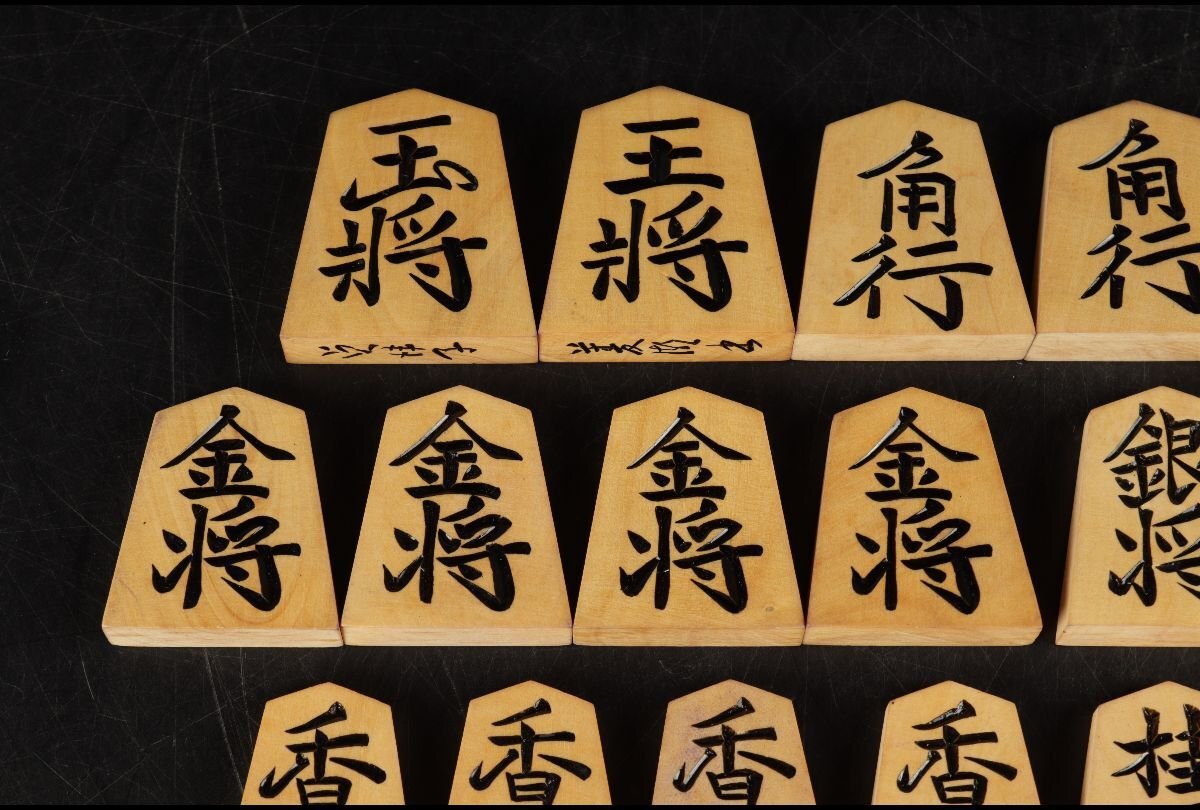 玉將
王將
角行
角行
金将
金将
金将
金将
銀将
香
香
香
香
桂